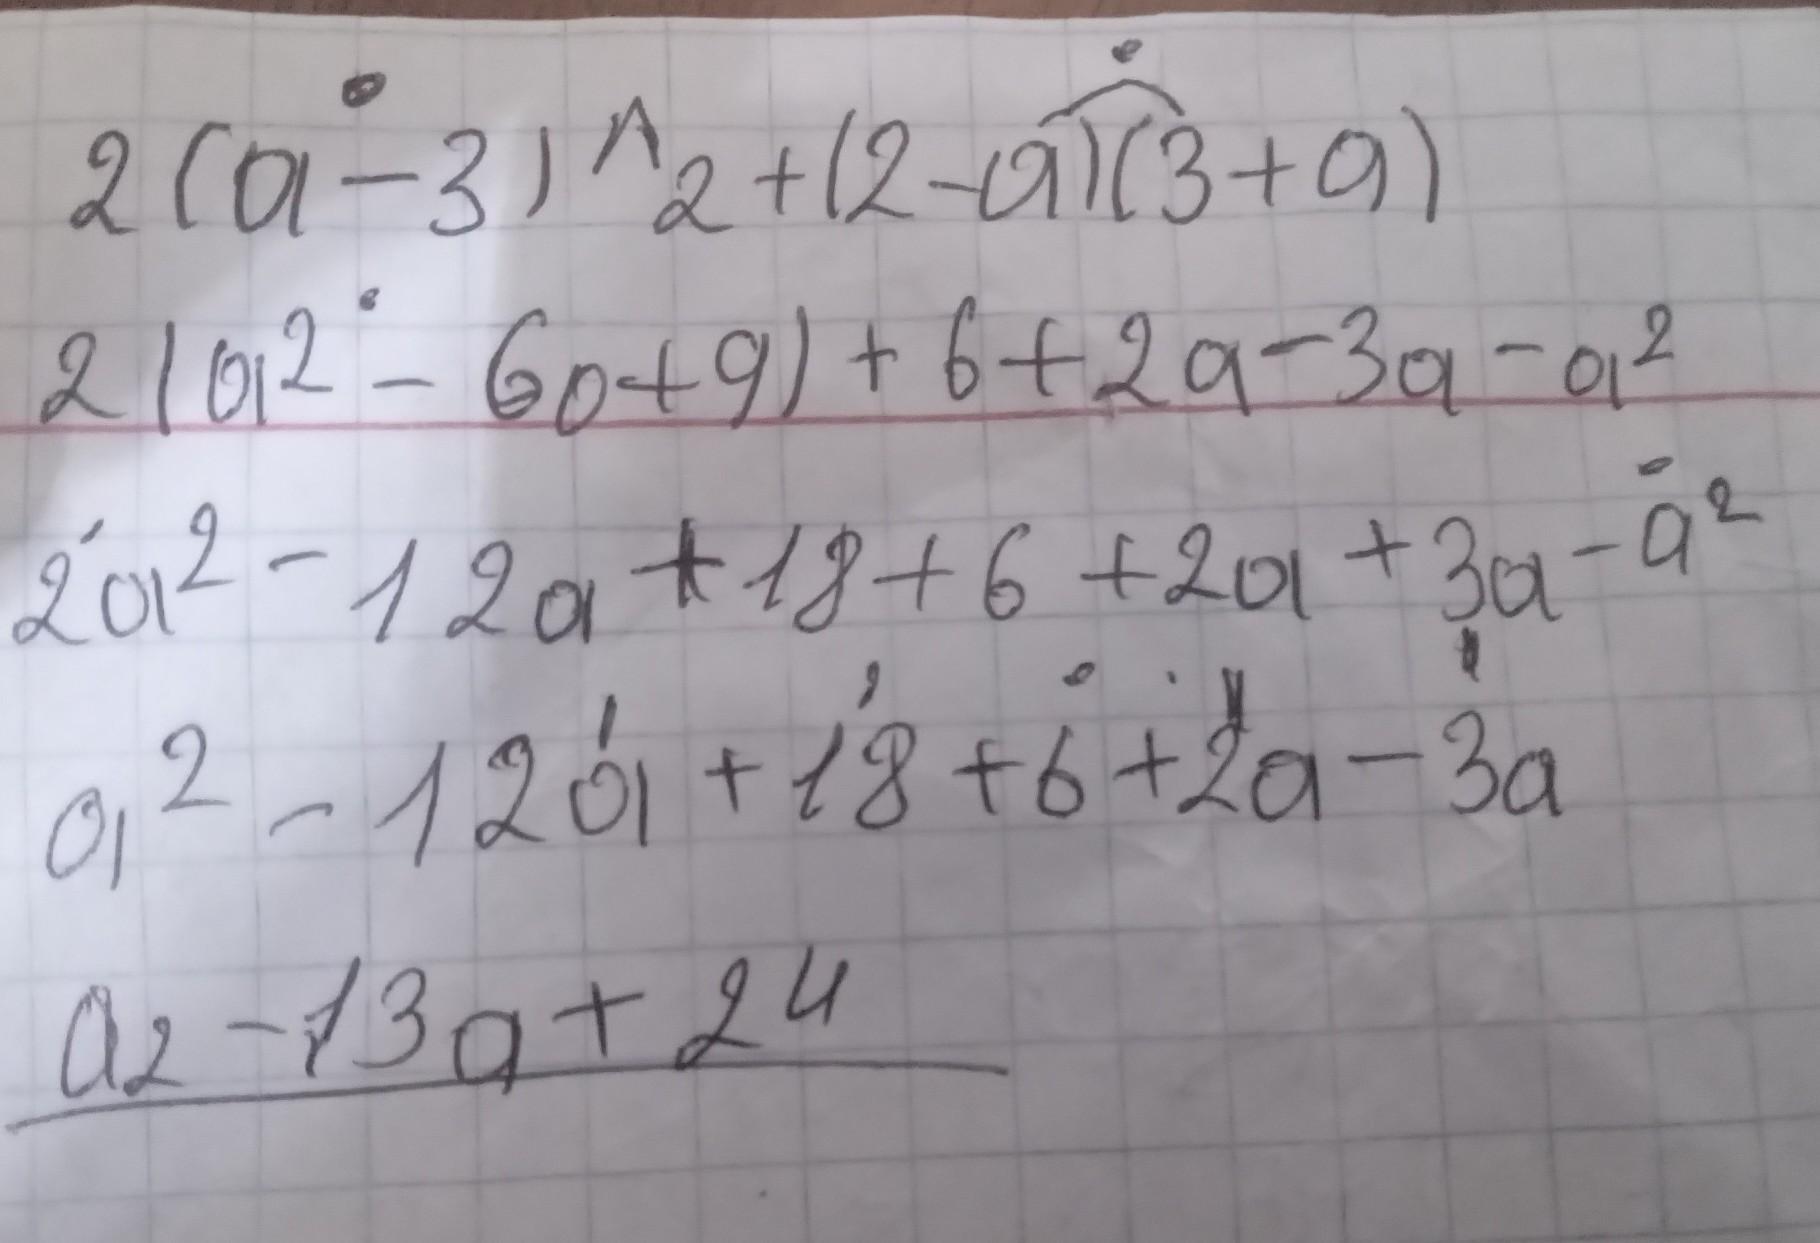 2(a-3)^2+(2-a)(3+a)
2(a²-6a+9)+6+2a-3a-a²
2a²-12a+18+6+2a+3a-a²
a²-12a+18+6+2a-3a
a2-13a+24